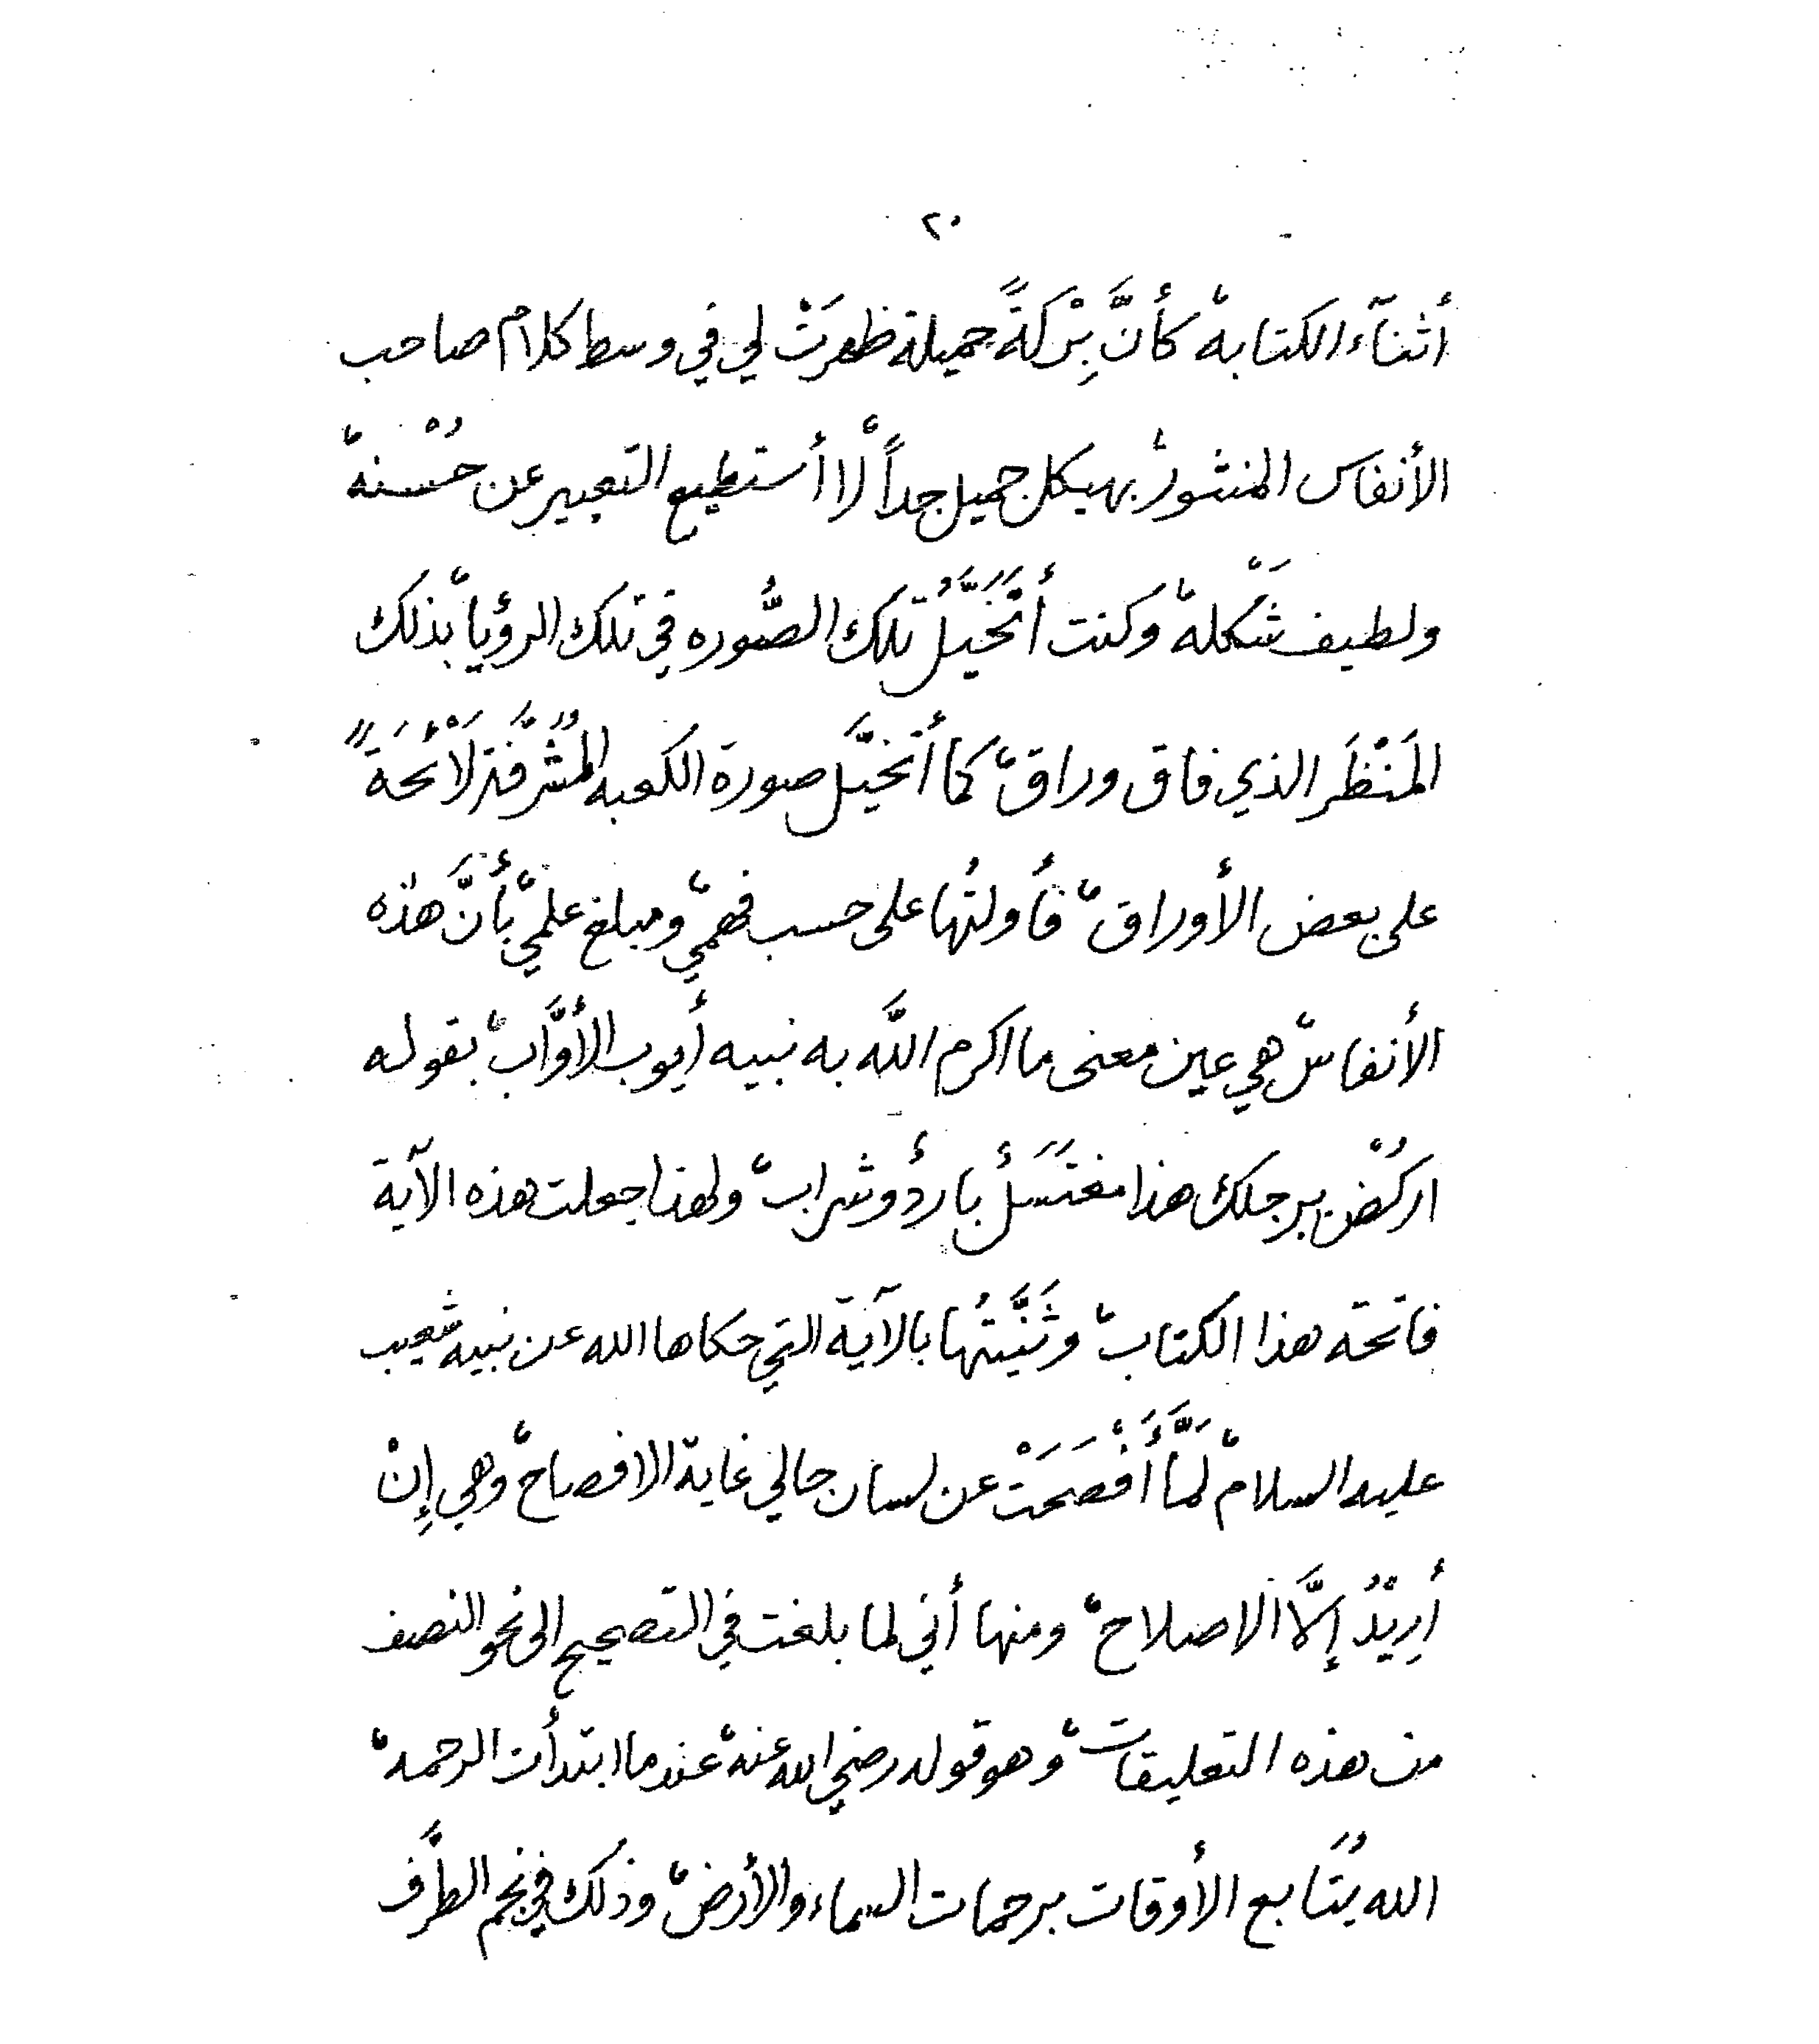 ٢٠
أثنآء الكتابة، كأنَّ بِرْكَةً جميلة ظهرَتْ لي في وسط كلام صاحب
الأنفاس المنثور، بهيكل جميل جداً، لا أستطيع التعبير عن حُسْنه،
ولطيف شَكْله، وكنت أتَخَيَّلُ تلك الصُّوره في تلك الرؤيا، بذلك
المَنْظَر الذي فاق وراق، كما أتخيَّل صورة الكعبه المُشَرَّفَة لَائحَةً
على بعض الأوراق، فأولتُها على حسب فهمي، ومبلغ علمي، بأَنَّ هذه
الأنفاس، هي عين معنى ما اكرم اللَّه به نبيه أيوب الأَوَّاب، بقوله
اركُضْ برجلك هذا مغتَسَلٌ باردٌ وشراب، ولهذا جعلت هذه الآية
فاتحة هذا الكتاب، وثَنَّيتُها بالآية التي حكاها الله عن نبيه شعيب
عليه السلام، لَمَّا أَفْصَحَتْ عن لسان حالي غاية الافصاح، وهي إِنْ
أُرِيْدُ إلَّا الاصلاح، ومنها أني لما بلغت في التصحيح الى نحو النصف
من هذه التعليقات، وهو قوله رضي الله عنه، عندما ابتدأت الرحمه،
الله يُتَابع الأوقات برحمات السماء والأرض، وذلك في نجم الطَّرْف